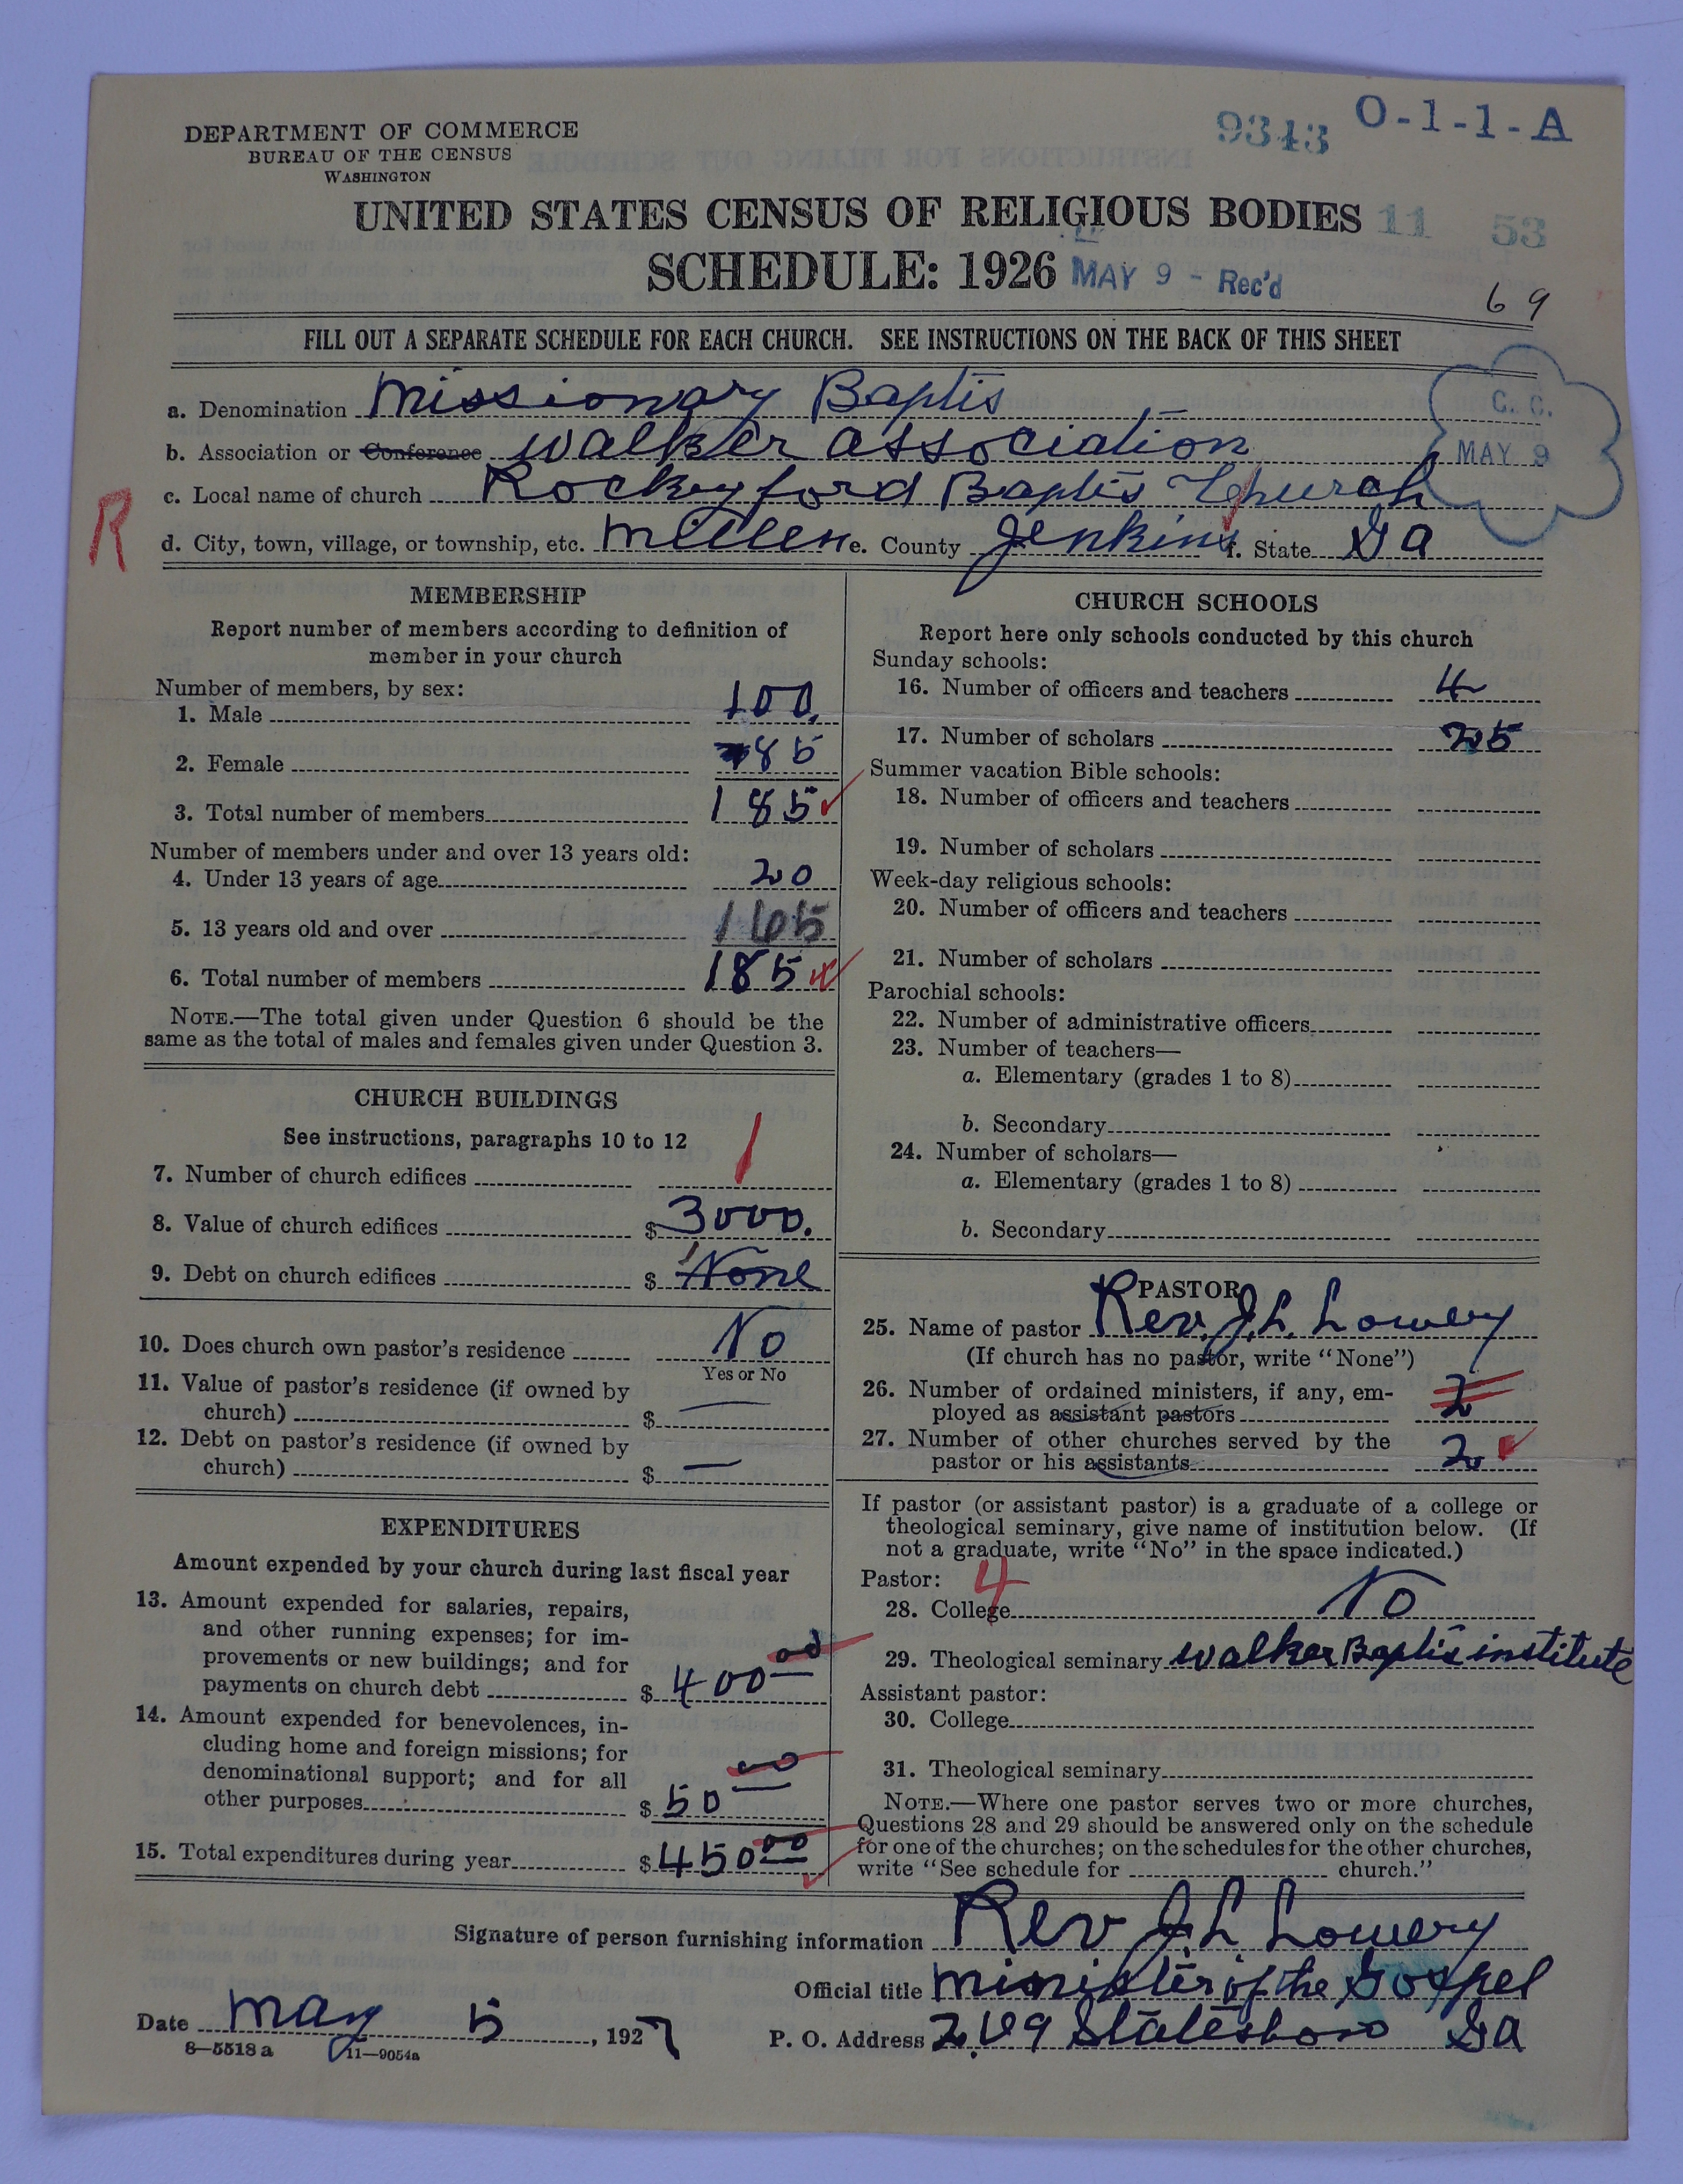 DEPARTMENT OF COMMERCE
BUREAU OF THE CENSUS
WASHINGTON
9343 O-1-1-A
UNITED STATES CENSUS OF RELIGIOUS BODIES 11 53
SCHEDULE: 1926 MAY 9 - Rec'd
69
FILL OUT A SEPARATE SCHEDULE FOR EACH CHURCH. SEE INSTRUCTIONS ON THE BACK OF THIS SHEET
a. Denomination Missionary Baptis
C. C.
b. Association or Conference walker association
MAY 9
c. Local name of church Rockyford Baptis Church
R
d. City, town, village, or township, etc. Millen e. County Jenkins f. State Ga
MEMBERSHIP
Report number of members according to definition of
member in your church
Number of members, by sex:
1. Male 100.
2. Female 85
3. Total number of members 185
Number of members under and over 13 years old:
4. Under 13 years of age 20
5. 13 years old and over 165
6. Total number of members 185
NOTE.—The total given under Question 6 should be the
same as the total of males and females given under Question 3.
CHURCH BUILDINGS
See instructions, paragraphs 10 to 12
7. Number of church edifices 1
8. Value of church edifices $ 3000.
9. Debt on church edifices $ None
10. Does church own pastor's residence No
Yes or No
11. Value of pastor's residence (if owned by
church) $ —
12. Debt on pastor's residence (if owned by
church) $ —
EXPENDITURES
Amount expended by your church during last fiscal year
13. Amount expended for salaries, repairs,
and other running expenses; for im-
provements or new buildings; and for
payments on church debt $ 400 00
14. Amount expended for benevolences, in-
cluding home and foreign missions; for
denominational support; and for all
other purposes $ 50 00
15. Total expenditures during year $ 450 00
CHURCH SCHOOLS
Report here only schools conducted by this church
Sunday schools:
16. Number of officers and teachers 4
17. Number of scholars 25
Summer vacation Bible schools:
18. Number of officers and teachers
19. Number of scholars
Week-day religious schools:
20. Number of officers and teachers
21. Number of scholars
Parochial schools:
22. Number of administrative officers
23. Number of teachers—
a. Elementary (grades 1 to 8)
b. Secondary
24. Number of scholars—
a. Elementary (grades 1 to 8)
b. Secondary
PASTOR
25. Name of pastor Rev. J. L. Lowery
(If church has no pastor, write "None")
26. Number of ordained ministers, if any, em-
ployed as assistant pastors 2
27. Number of other churches served by the
pastor or his assistants 2
If pastor (or assistant pastor) is a graduate of a college or
theological seminary, give name of institution below. (If
not a graduate, write "No" in the space indicated.)
Pastor: 4
28. College No
29. Theological seminary walker Baptis institute
Assistant pastor:
30. College
31. Theological seminary
NOTE.—Where one pastor serves two or more churches,
Questions 28 and 29 should be answered only on the schedule
for one of the churches; on the schedules for the other churches,
write "See schedule for church."
Signature of person furnishing information Rev J. L. Lowery
Official title minister of the Gospel
Date May 5, 1927 P. O. Address Statesboro Ga
8—5518 a 11—9054a